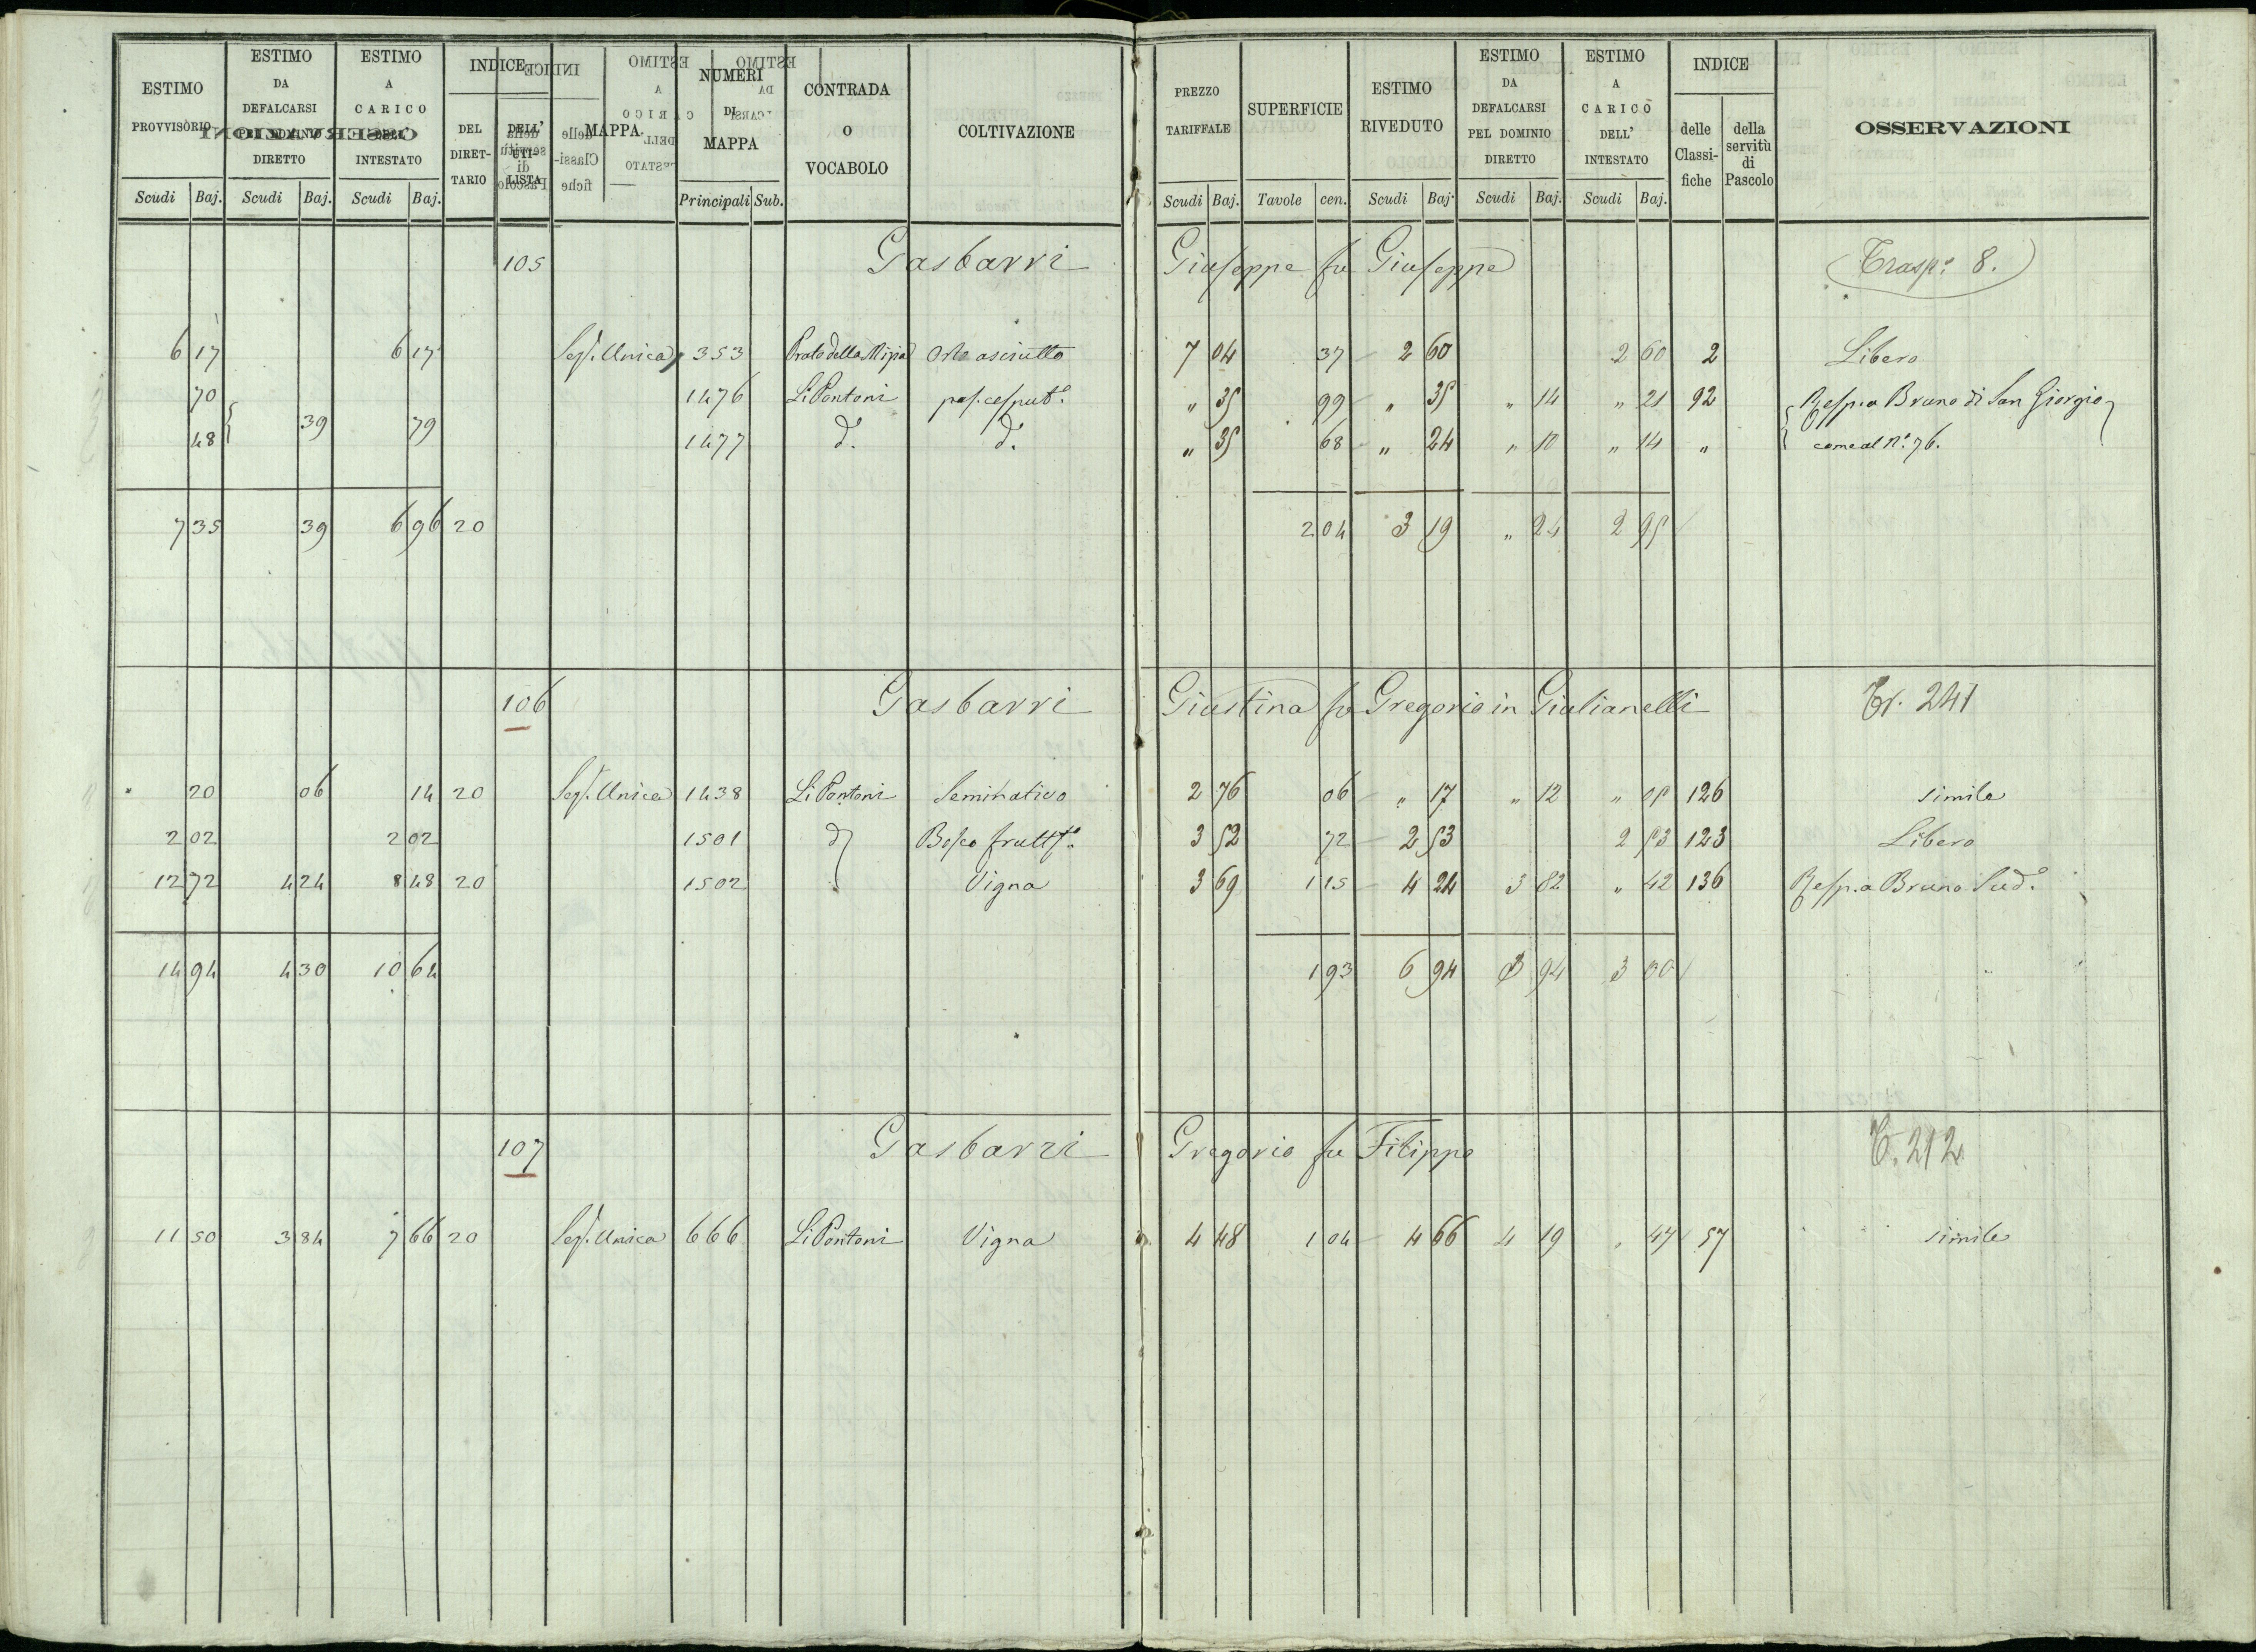 ESTIMO PROVVISORIO Scudi Baj. ESTIMO DA DEFALCARSI PEL DOMINIO DIRETTO Scudi Baj. ESTIMO A CARICO DELL' INTESTATO Scudi Baj. INDICE DEL DIRETTARIO DELL' UTILISTA MAPPA NUMERI DI MAPPA Principali Sub. CONTRADA O VOCABOLO COLTIVAZIONE PREZZO TARIFFALE Scudi Baj. SUPERFICIE Tavole cen. ESTIMO RIVEDUTO Scudi Baj. ESTIMO DA DEFALCARSI PEL DOMINIO DIRETTO Scudi Baj. ESTIMO A CARICO DELL' INTESTATO Scudi Baj. INDICE delle Classifiche della servitù di Pascolo OSSERVAZIONI
105 Gasbarri Giuseppe fu Giuseppe Trasp.º 8.
6 17 6 17 Sez. Unica 353 Prato della orto asciutto 7 04 37 2 60 2 60 2 Libero
70 1476 Li Pontoni pas. cesput.º " 35 99 " 35 " 14 " 21 92 Resp. a Bruno di San Giorgio
39 79
48 1477 d.º d.º " 35 68 " 24 " 10 " 14 " come al N.º 76.
7 35 39 6 96 20 2 04 3 19 " 24 2 95
106 Gasbarri Giustina fu Gregorio in Giulianelli Tr. 241
" 20 06 14 20 Sez. Unica 1438 Li Pontoni Seminativo 2 76 06 " 17 " 12 " 05 126 simile
2 02 2 02 1501 d.º Bosco frutt.º 3 52 72 2 53 2 53 123 Libero
12 72 4 24 8 48 20 1502 Vigna 3 69 1 15 4 24 3 82 " 42 136 Resp. a Bruno Sud.º
14 94 4 30 10 64 1 93 6 94 3 94 3 00
107 Gasbarri Gregorio fu Filippo T. 212
11 50 3 84 7 66 20 Sez. Unica 666 Li Pontoni Vigna 4 48 1 04 4 66 4 19 " 47 57 simile